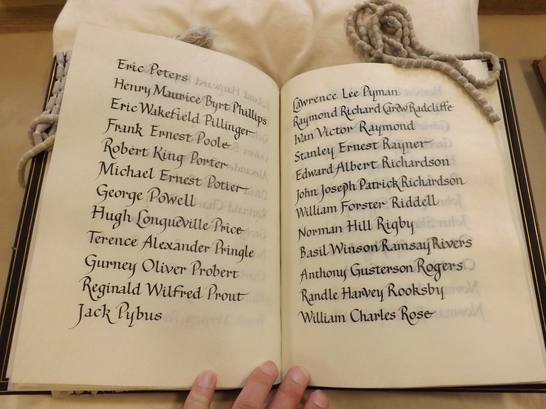 Eric Peters
Henry Maurice Byrt Phillips
Eric Wakefield Pillinger
Frank Ernest Poole
Robert King Porter
Michael Ernest Potier
George Powell
Hugh Longueville Price
Terence Alexander Pringle
Gurney Oliver Probert
Reginald Wilfred Prout
Jack Pybus
Lawrence Lee Pyman
Raymond Richard Carew Radcliffe
Ivan Victor Raymond
Stanley Ernest Rayner
Edward Albert Richardson
John Joseph Patrick Richardson
William Forster Riddell
Norman Hill Rigby
Basil Winson Ramsay Rivers
Anthony Gusterson Rogers
Randle Harvey Rooksby
William Charles Rose